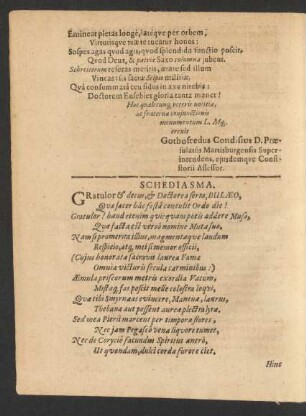 Emineat pietas longè, latéque per orbem,
Virtutisque tuæ te tueatur honos:
Sospes agas quod agis, quod splendida functio poscit,
Quod Deus, & patriæ Saxo columna jubent.
Schreiterum referas meritis, ætate sed illum
Vincas: sis sacræ Scipio militiæ.
Quâ consummatâ ceu sidus in axe nitebis:
Doctorem Eusebies gloria tanta manet!
Hoc qualecunq; veteris notitiæ,
ac fraternæ conjunctionis
monumentum L. Mq;
erexit
Gothofredus Condisius D. Præ-
sulatûs Martisburgensis Super-
intendens, ejusdemque Consi-
storii Assessor.
SCHEDIASMA.
GRatulor & decus, & Doctorea serta, BULÆO,
Qua sacer hâc festâ contulit Ordo die!
Gratulor? haud etenim quic quam petis addere Musa,
Qua facta est verò nomine Muta suo.
Nam si promeritis illius, augmentaque laudum
Respicio, atq; meî memor officii,
(Cujus honorata sacravit laurea Fama
Omnia victuris secula carminibus:)
Æmula priscorum metris exardita Vatum,
Mystaq; fas poscit melle colostra loqui.
Quæ tibi Smyrnæas evincere, Mantua, laurus,
Thebana aut possent aurea plectra lyræ.
Sed mea Pierii marcent per tempora flores,
Nec jam Pegaseo vena liquore tumet,
Nec de Corycio facundum Spiritus antrô,
Ut quondam, dulci corda furore ciet.
Hinc